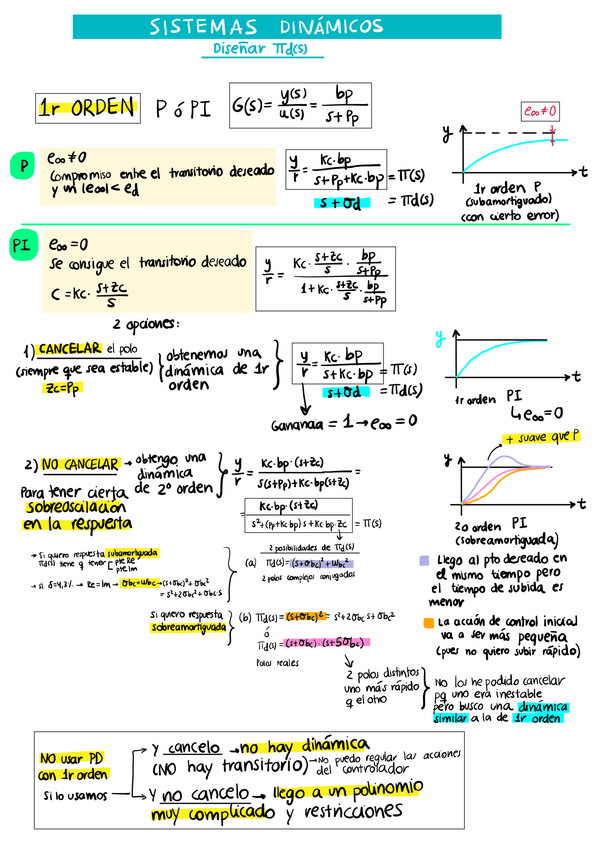 SISTEMAS DINÁMICOS
Diseñar πd(s)
1r ORDEN P ó PI G(s) = y(s)/u(s) = bp/(s+Pp)
e∞≠0
y
t
1r orden P
(subamortiguado)
(con cierto error)
P
e∞≠0
compromiso entre el transitorio deseado
y un |e∞| < ed
y/r = Kc·bp/(s+Pp+Kc·bp) = π(s)
s+σd = πd(s)
PI
e∞=0
se consigue el transitorio deseado
C = Kc· (s+zc)/s
y/r = (Kc· (s+zc)/s · bp/(s+Pp))/(1+Kc· (s+zc)/s · bp/(s+Pp))
2 opciones:
1) CANCELAR el polo
(siempre que sea estable)
zc=Pp
obtenemos una
dinámica de 1r
orden
y/r = Kc·bp/(s+Kc·bp) = π(s)
s+σd = πd(s)
Ganancia = 1 → e∞ = 0
y
t
1r orden PI
↳ e∞=0
2) NO CANCELAR → obtengo una
dinámica
de 2º orden
Para tener cierta
sobreoscilación
en la respuesta
y/r = Kc·bp·(s+zc)/(s(s+Pp)+Kc·bp(s+zc)) =
= Kc·bp·(s+zc)/(s²+(Pp+Kc·bp)s+Kc·bp·zc) = π(s)
+ suave que P
y
t
2o orden PI
(sobreamortiguada)
→ Si quiero respuesta subamortiguada
πd(s) tiene q tener pte Re
pte Im
→ si δ=4,3% → Re=Im → σbc=ωbc → (s+σbc)²+σbc²
= s²+2σbc²+σbc·s
2 posibilidades de πd(s)
(a) πd(s)= (s+σbc)²+ωbc²
2 polos complejos conjugados
si quiero respuesta
sobreamortiguada
(b) πd(s) = (s+σbc)² = s²+2σbc·s+σbc²
ó
πd(s) = (s+σbc)·(s+5σbc)
Polos reales
2 polos distintos
uno más rápido
q el otro
Llego al pto deseado en
el mismo tiempo pero
el tiempo de subida es
menor
La acción de control inicial
va a ser más pequeña
(pues no quiero subir rápido)
No los he podido cancelar
pq uno era inestable
pero busco una dinámica
similar a la de 1r orden
NO usar PD
con 1r orden
Si lo usamos
→ Y cancelo → no hay dinámica
(NO hay transitorio) → No puedo regular las acciones
del controlador
→ Y no cancelo → llego a un polinomio
muy complicado y restricciones